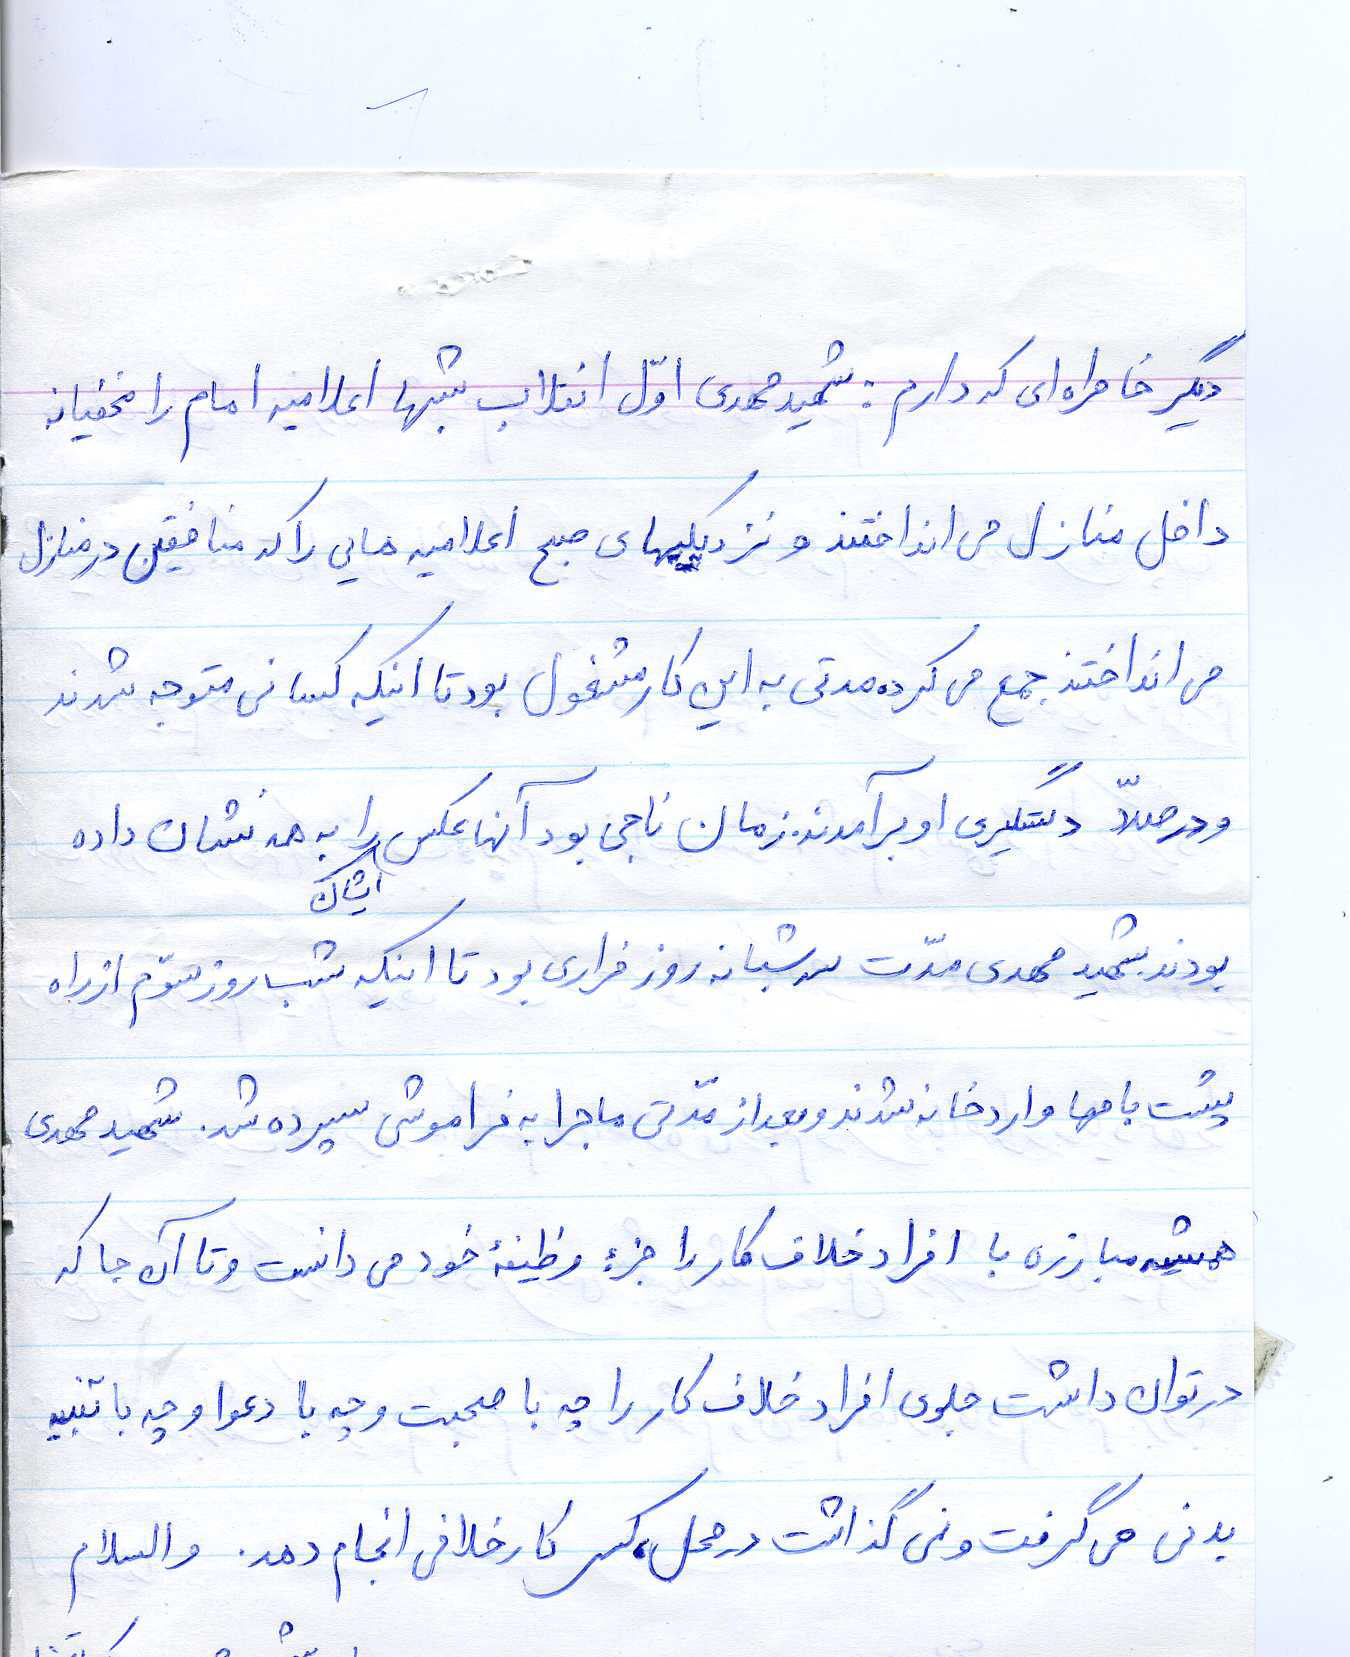 دیگر خاطره‌ای که دارم : شهید محمدی اوّل انقلاب شبها اعلامیه امام را مخفیانه
داخل منازل می انداختند و نزدیکیهای صبح اعلامیه هایی را که منافقین در منازل
می انداختند جمع می کرده مدتی به این کار مشغول بود تا اینکه کسانی متوجه شدند
و در صدد دستگیری او برآمدند. زمان ناجی بود آنها عکس ایشان را به همه نشان داده
بودند شهید محمدی مدّت سه شبانه روز فراری بود تا اینکه شب روز سوّم از راه
پشت بامها وارد خانه شدند و بعد از مدّتی ماجرا به فراموشی سپرده شد. شهید محمدی
همیشه مبارزه با افراد خلاف کار را جزء وظیفهٔ خود می دانست و تا آن جا که
در توان داشت جلوی افراد خلاف کار را چه با صحبت و چه با دعوا و چه با تنبیه
بدنی می گرفت و نمی گذاشت در محل، کسی کار خلافی انجام دهد. والسلام